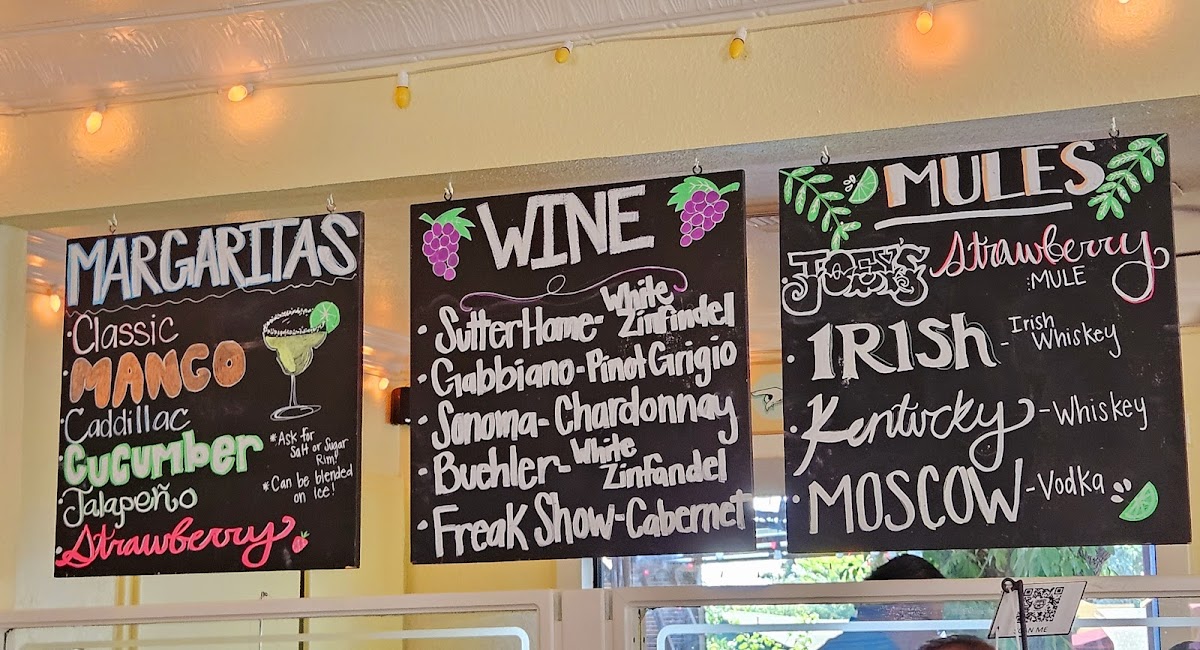 MARGARITAS
• Classic
• MANGO
• Caddillac
• Cucumber
• Jalapeño
• Strawberry
*Ask for
Salt or Sugar
Rim!
*Can be blended
on Ice!
WINE
• Sutter Home - White
Zinfindel
• Gabbiano - Pinot Grigio
• Sonoma - Chardonnay
• Buehler - White
Zinfandel
• Freak Show - Cabernet
MULES
• JOEY'S Strawberry
:MULE
• IRISh - Irish
Whiskey
• Kentucky - Whiskey
• MOSCOW - Vodka
ME